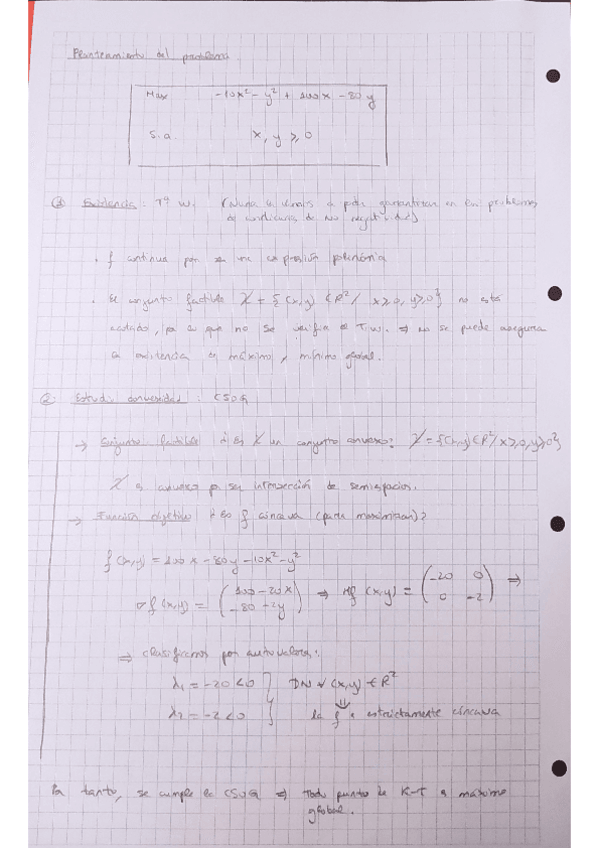 Planteamiento del problema.
Max -10x² - y² + 100x - 80y
S.a. x, y ≥ 0
① Existencia: Tª W. (Nunca la vamos a poder garantizar en problemas
de condiciones de no negatividad)
· f continua por ser una expresión polinómica
· El conjunto factible X = {(x,y) ∈ R² / x≥0, y≥0} no está
acotado, por lo que no se verifica el T.W. ⇒ no se puede asegurar
la existencia de máximo y mínimo global.
② Estudio convexidad: CSOG
→ Conjunto factible ¿Es X un conjunto convexo? X = {(x,y) ∈ R² / x≥0, y≥0}
X es convexo por ser intersección de semiespacios.
→ Función objetivo ¿Es f cóncava (para maximizar)?
f(x,y) = 100x - 80y - 10x² - y²
∇f(x,y) = (100 - 20x ⇒ Hf(x,y) = (-20 0 ⇒
-80 + 2y) 0 -2)
⇒ clasificamos por autovalores:
λ₁ = -20 < 0 } DN ∀ (x,y) ∈ R²
⇓
λ₂ = -2 < 0 la f es estrictamente cóncava
Por tanto, se cumple la CSOG ⇒ Todo punto de K-T es máximo
global.